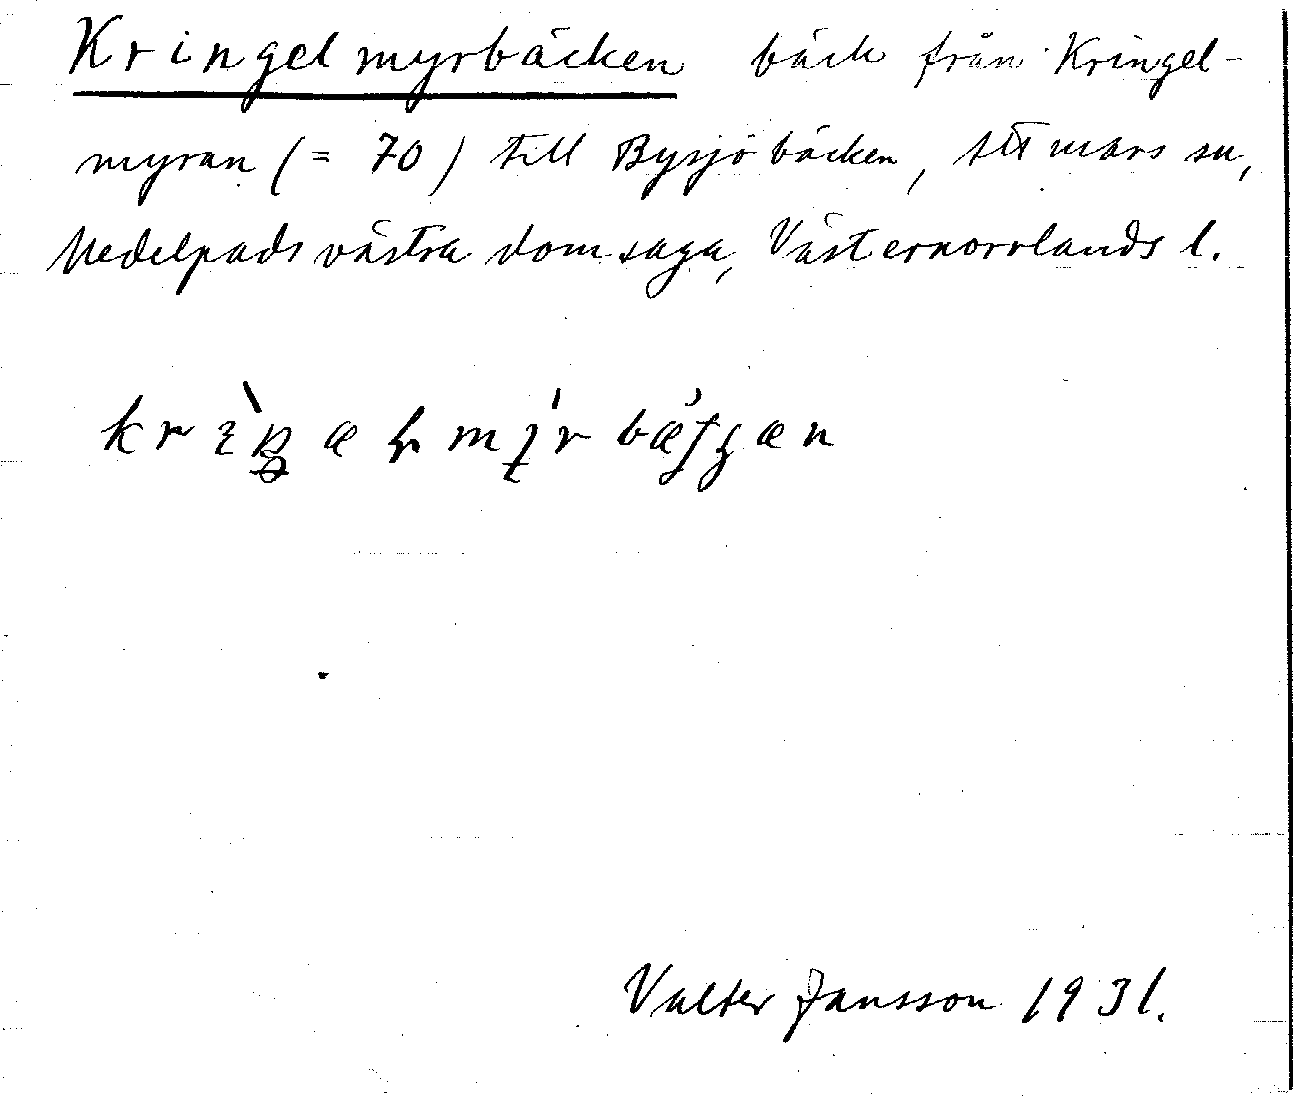 Kringelmyrbäcken bäck från Kringel-
myran (= 70) till Bysjöbäcken, Attmars sn,
Medelpads västra domsaga, Västernorrlands l.
Valter Jansson 1931.